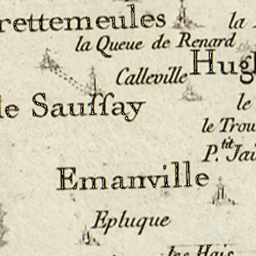 rettemeules
la
la Queue de Renard
Calleville
Hugl
le Sauſſay
le
le Trou
P.tit Jai
Emanville
Epluque
les Hais